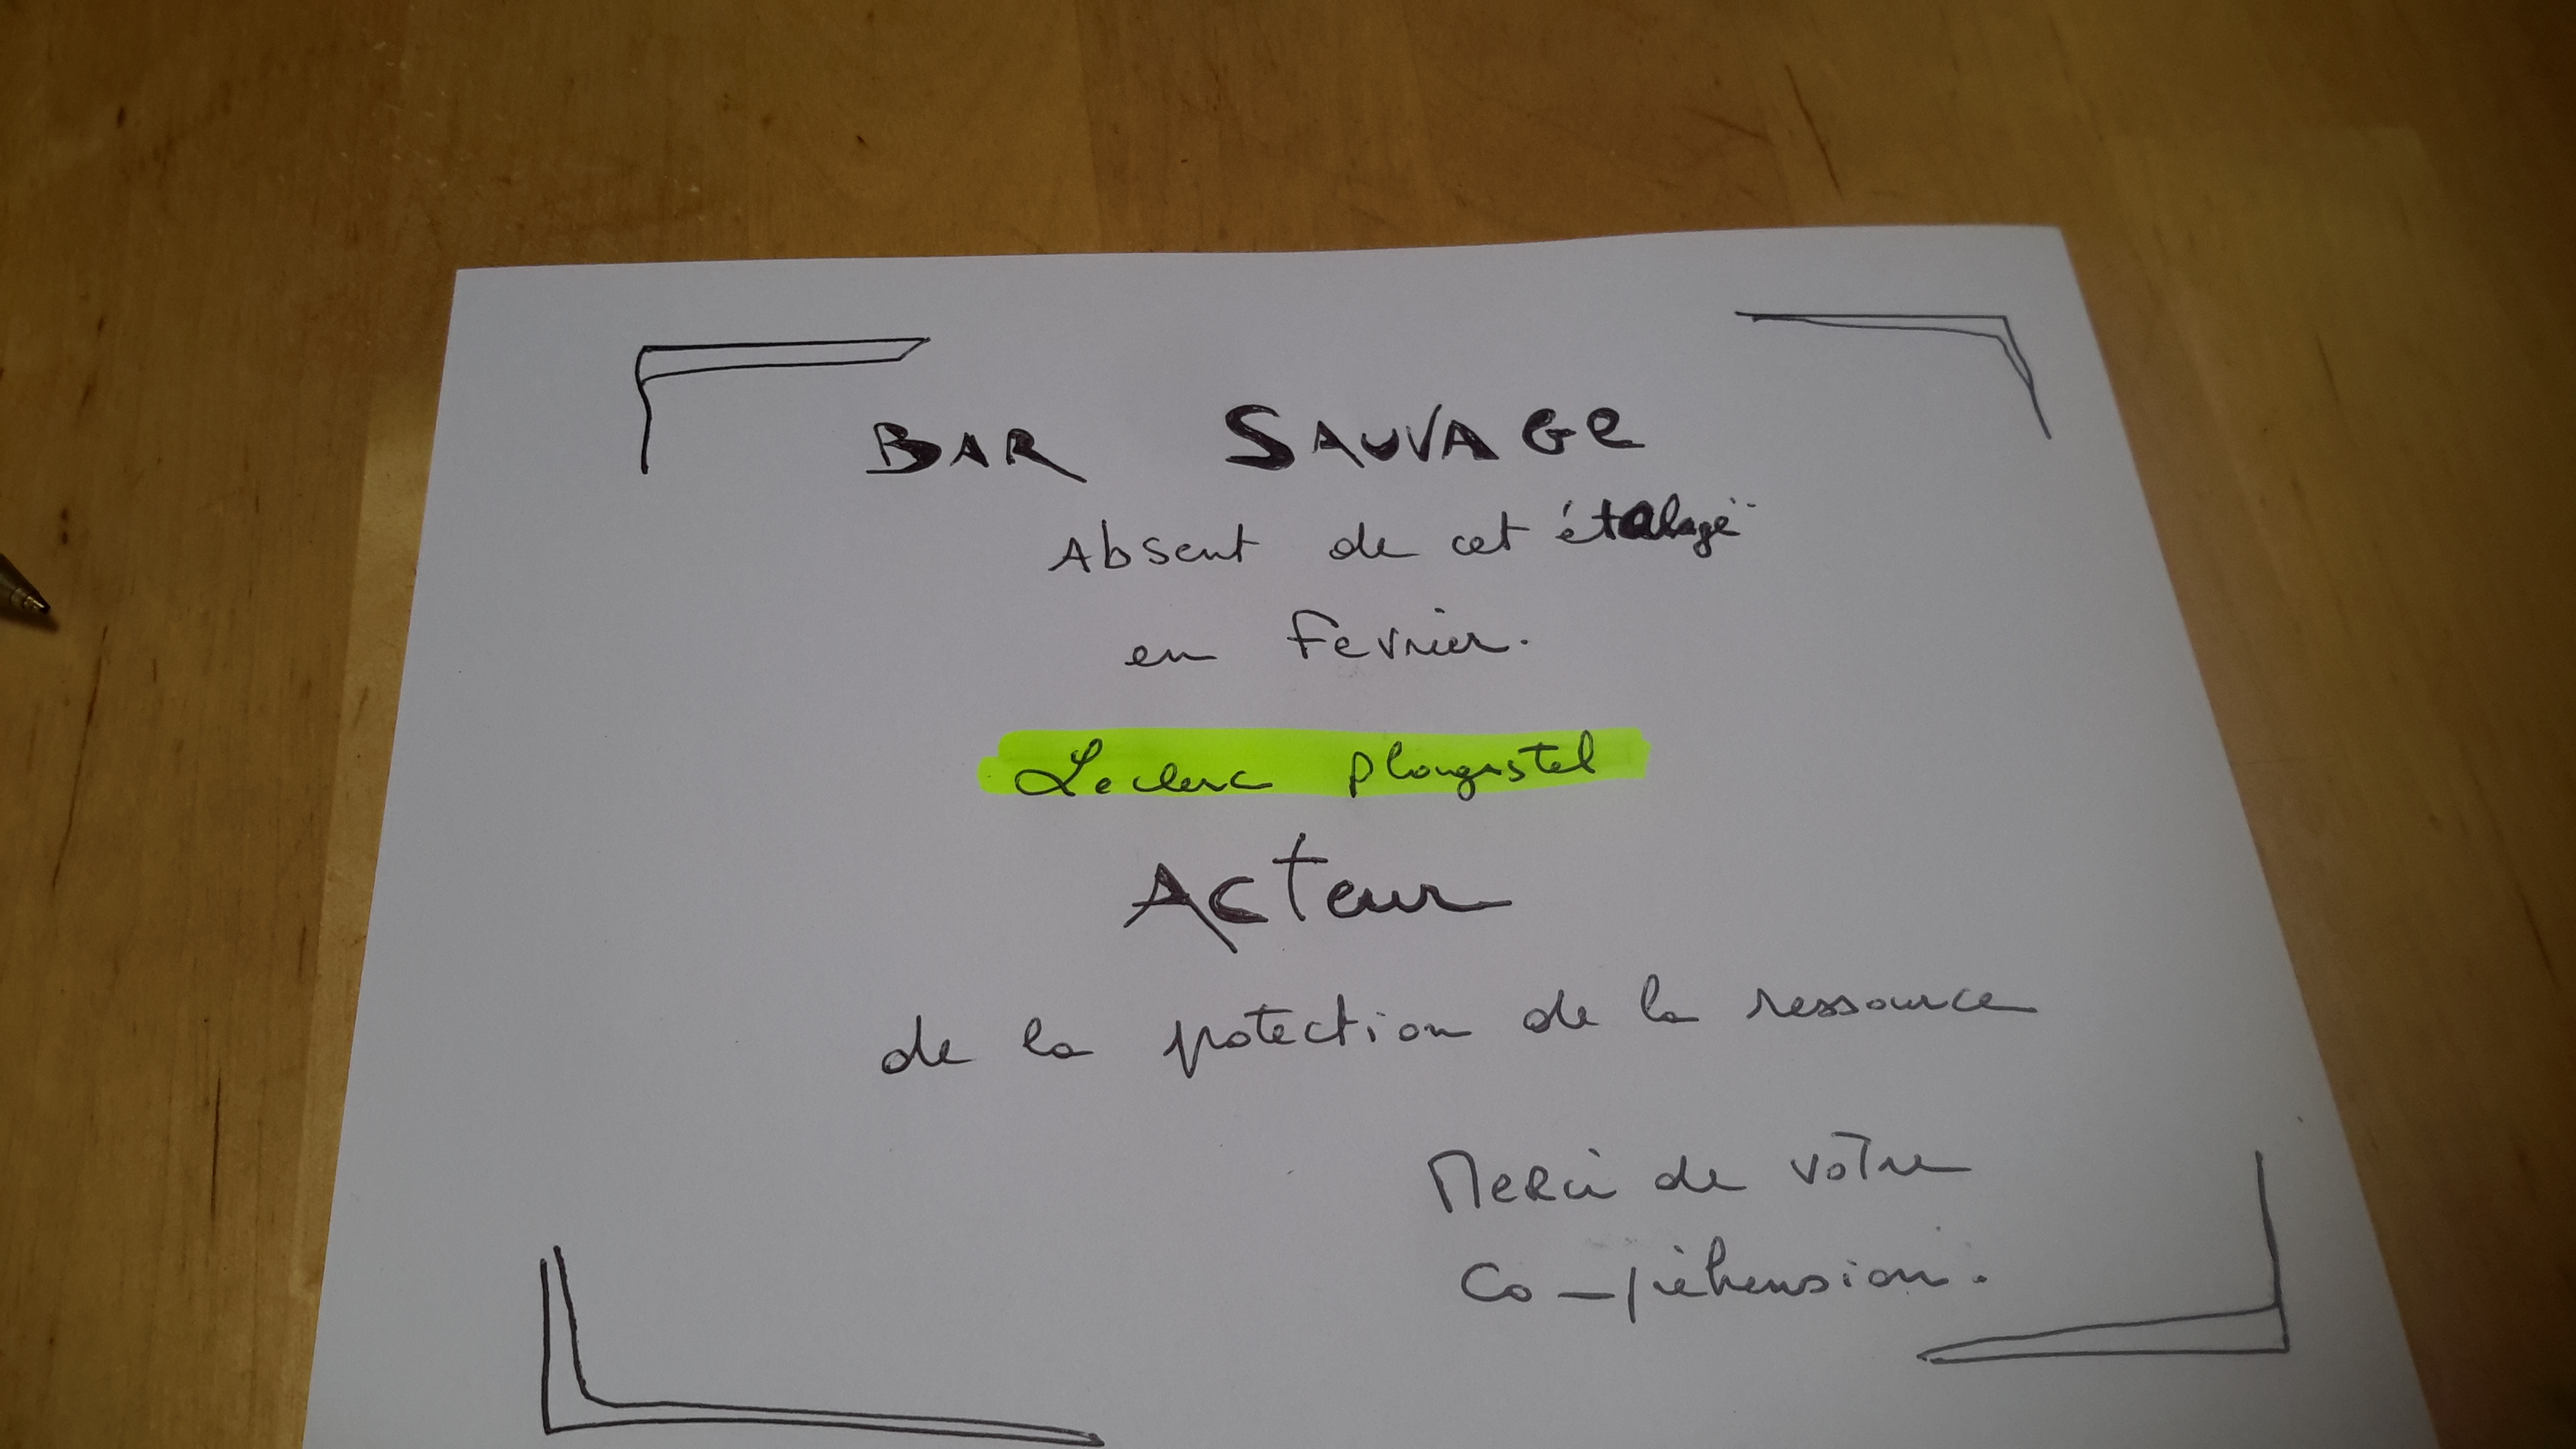 BAR SAUVAGE
Absent de cet étalage
en Fevrier.
Leclerc plougastel
Acteur
de la protection de la ressource
Merci de votre
Compréhension.